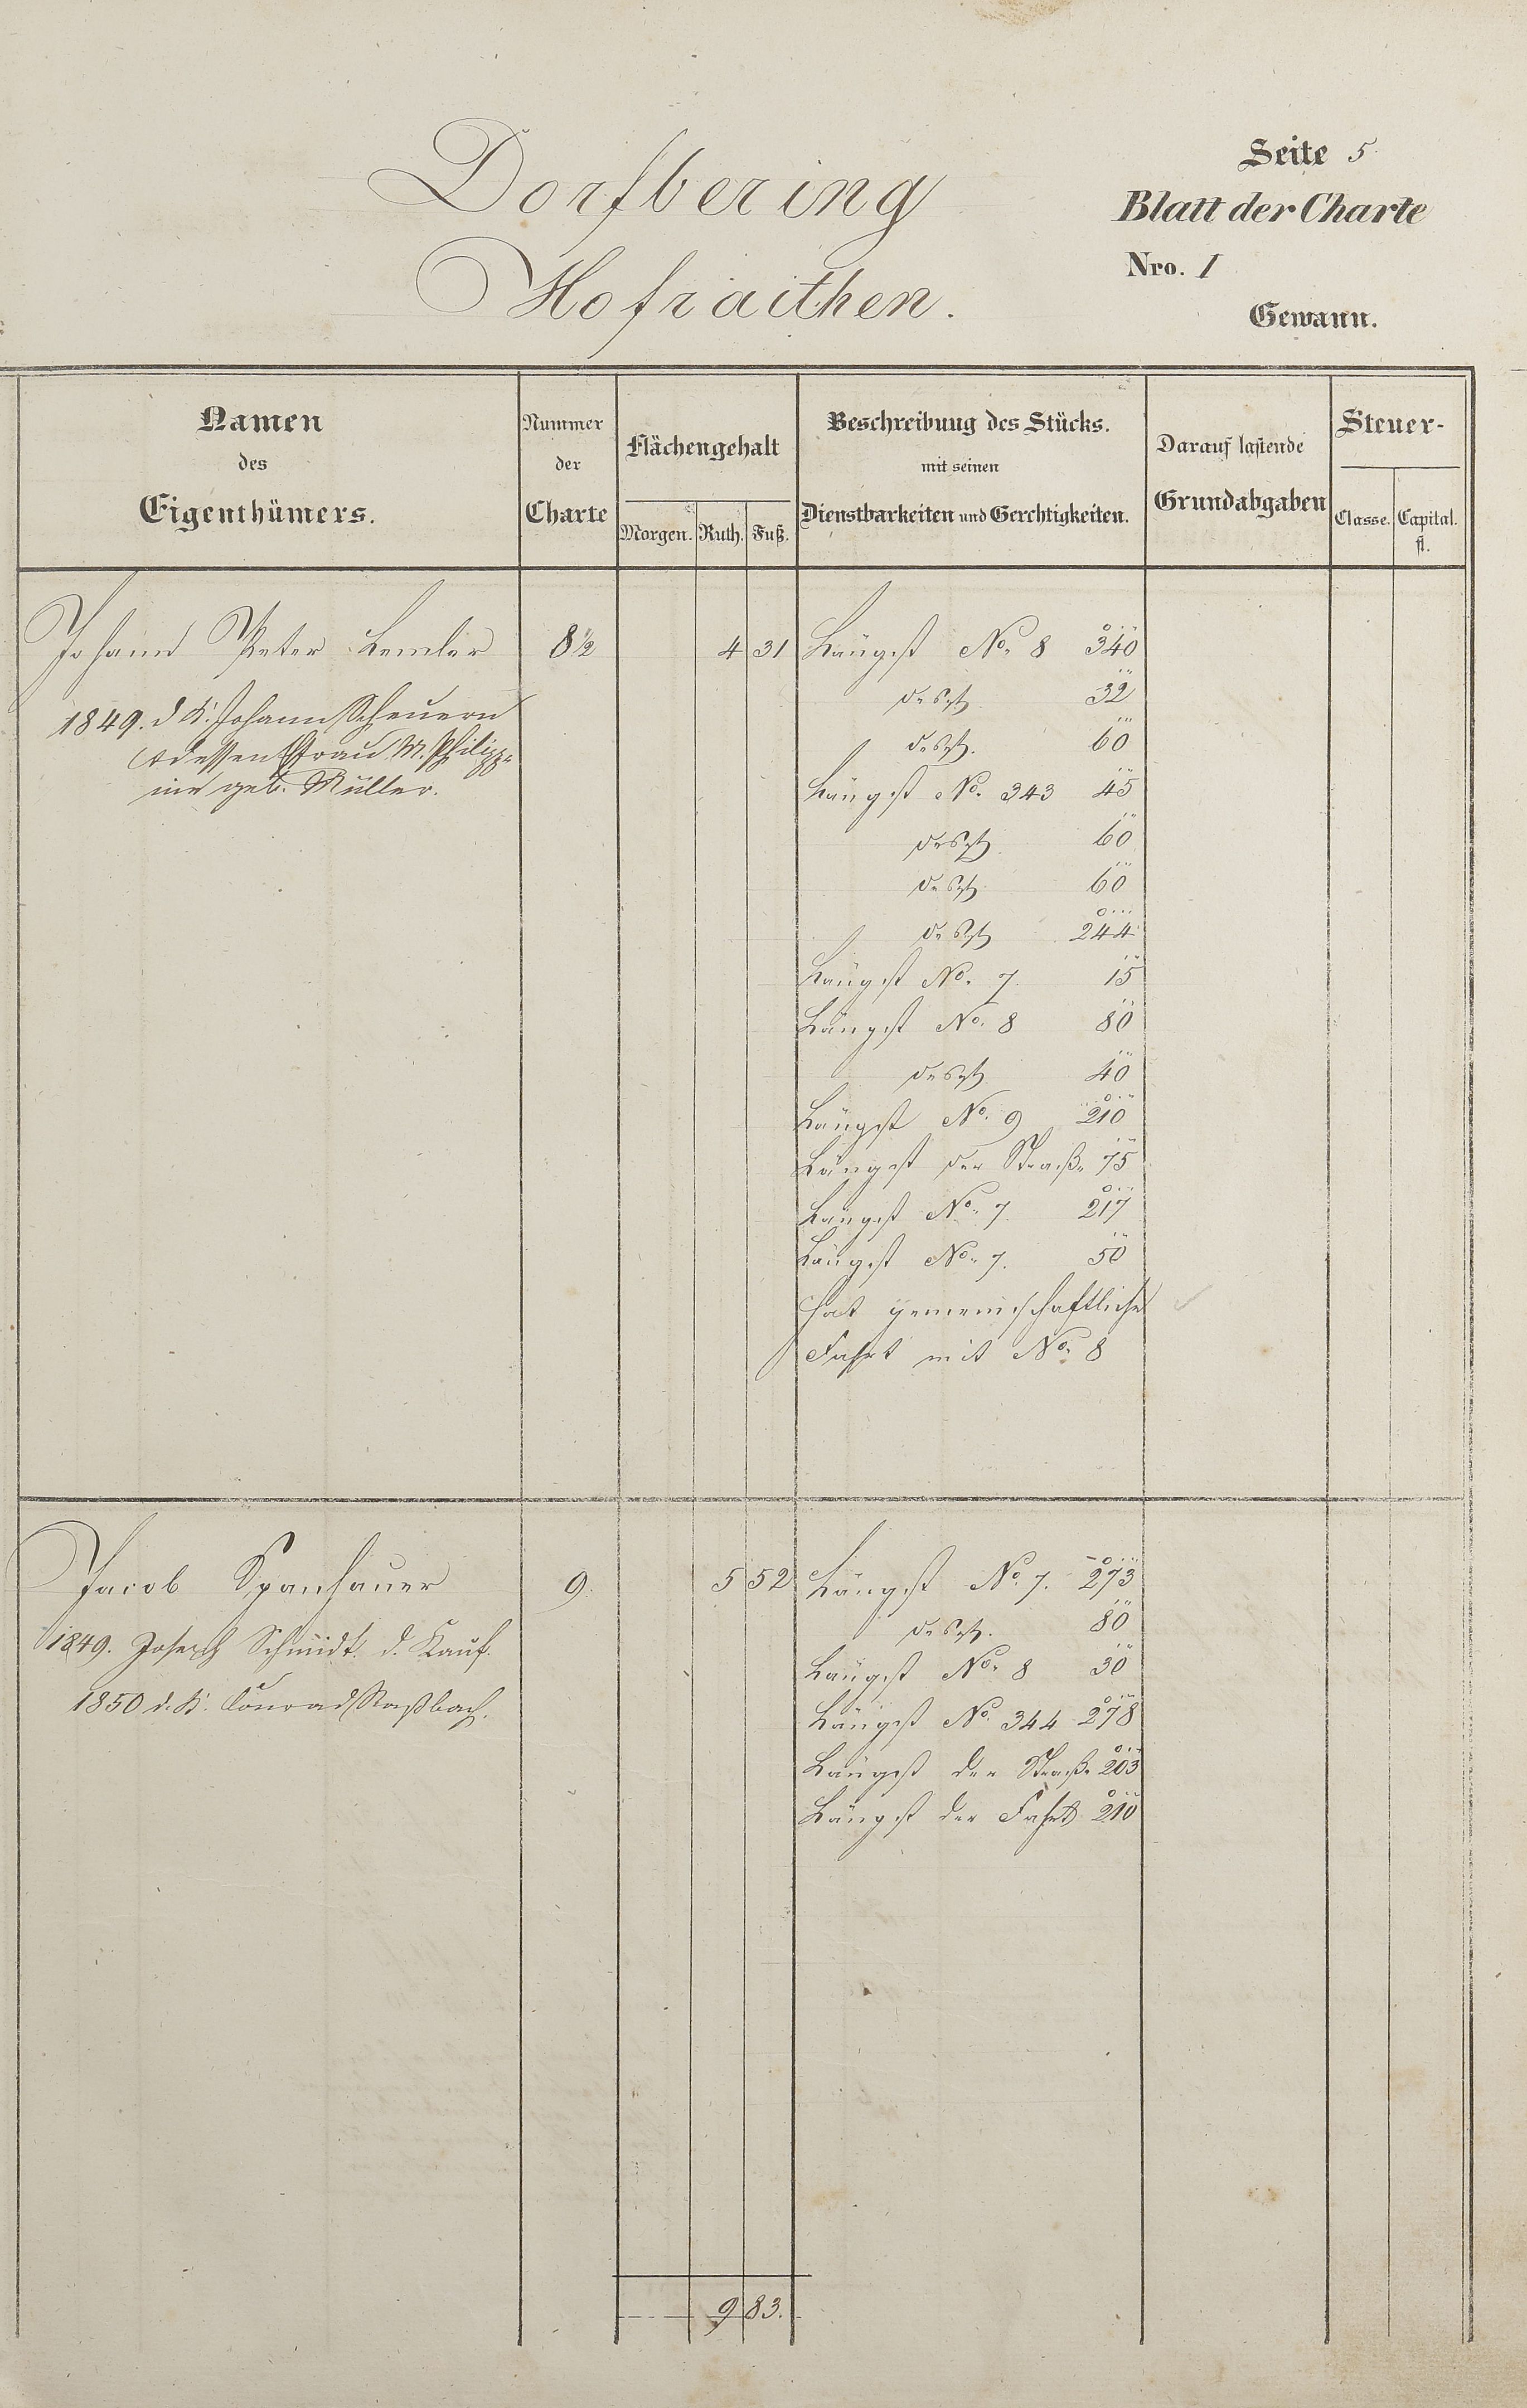 Dorfbering
Hofraithen.
Seite 5
Blatt der Charte
Nro. I
Gewann.
Namen
des
Eigenthümers.
Nummer
der
Charte
Flächengehalt
Morgen. Ruth. Fuß.
Beschreibung des Stücks.
mit seinen
Dienstbarkeiten und Gerchtigkeiten.
Darauf lastende
Grundabgaben
Steuer-
Classe. Capital.
fl.
Johann Peter Lemler 8 1/2 4 31 Längst No. 8 340
1849. d. K. Johann Scheuern
dessen Frau M. Philipp-
ine geb. Müller.
desgl. 32
desgl. 60
Längst No. 343 45
desgl. 60
desgl. 60
desgl. 244
Längst No. 7. 15
Längst No. 8 80
desgl. 40
Längst No. 9 210
Längst der Straße 75
Längst No. 7. 217
Längst No. 7. 50
hat gemeinschaftliche
Fahrt mit No. 8
Jacob Spanhauer 9. 5 52 Längst No. 7. 273
1849. Joseph Schmidt. d. Kauf.
1850 d. K. Conrad
desgl. 80
Längst No. 8 30
Längst No. 344 278
Längst der Straße 203
Längst der Fahrt 210
9 83.